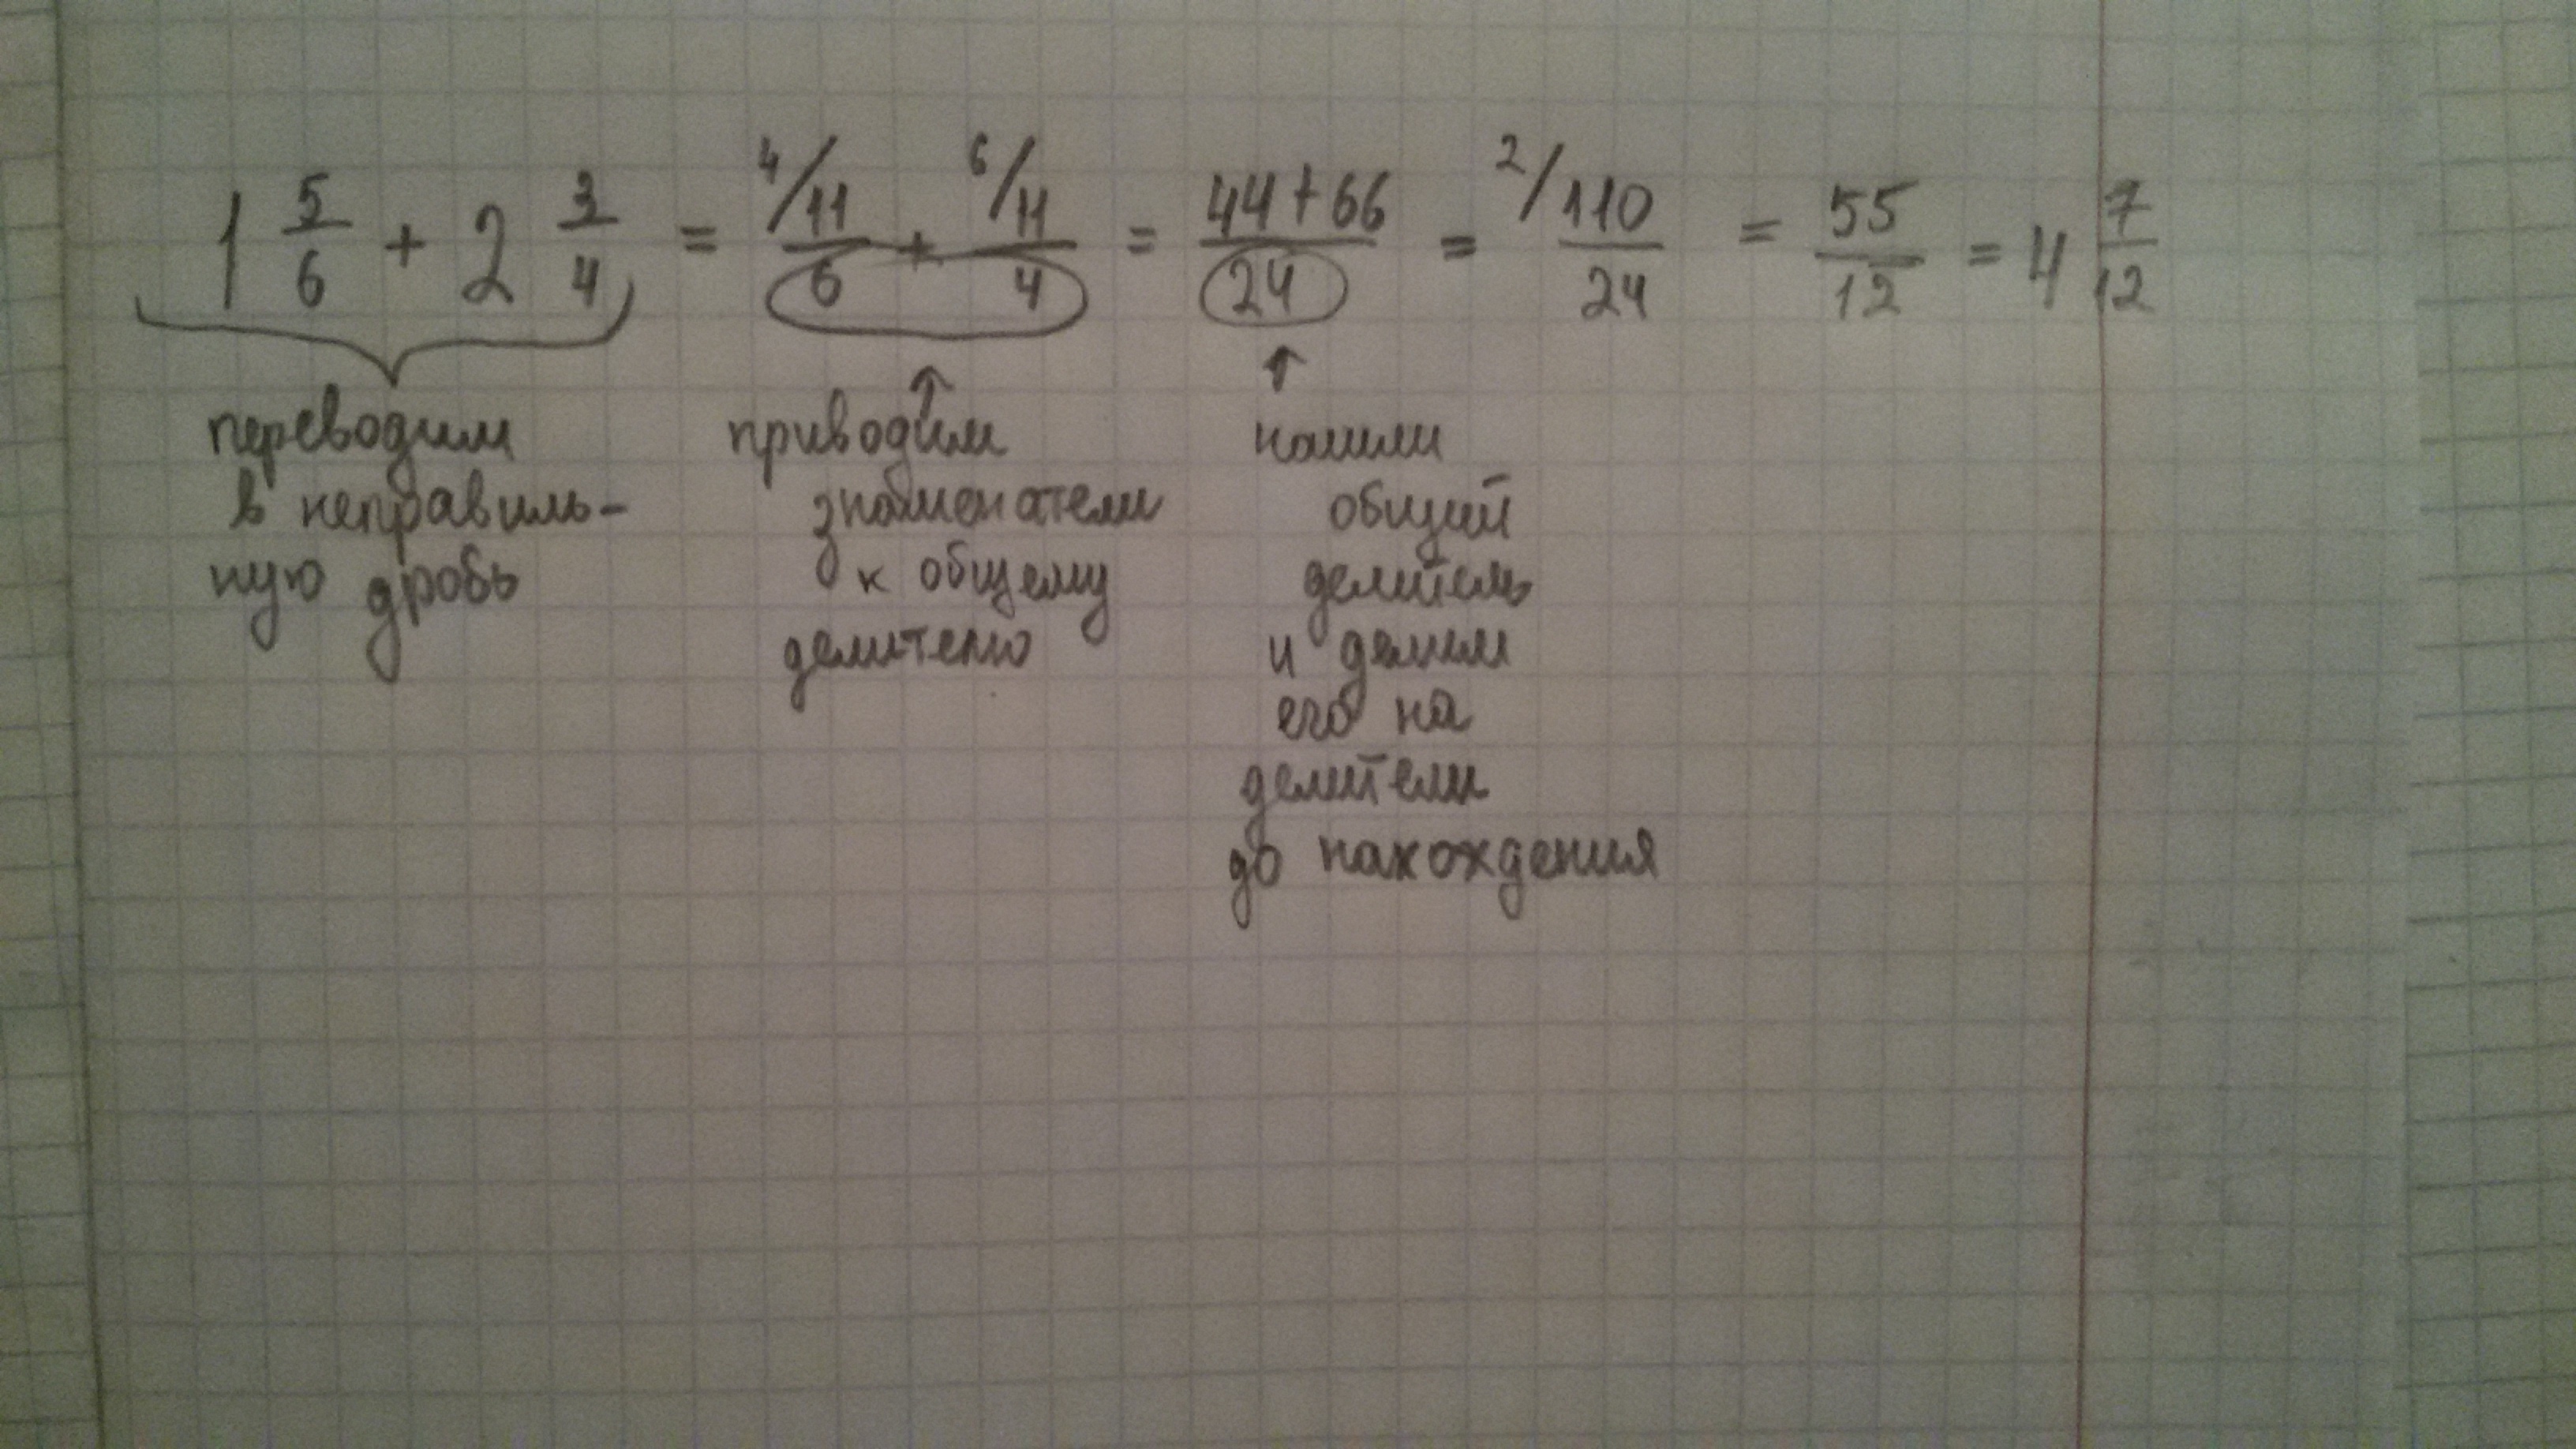 1 5/6 + 2 3/4 = 4/ 11/6 + 6/ 11/4 = 44+66/24 = 2/ 110/24 = 55/12 = 4 7/12
переводим
в неправиль-
ную дробь
приводим
знаменатели
к общему
делителю
нашли
общий
делитель
и делим
его на
делители
до нахождения